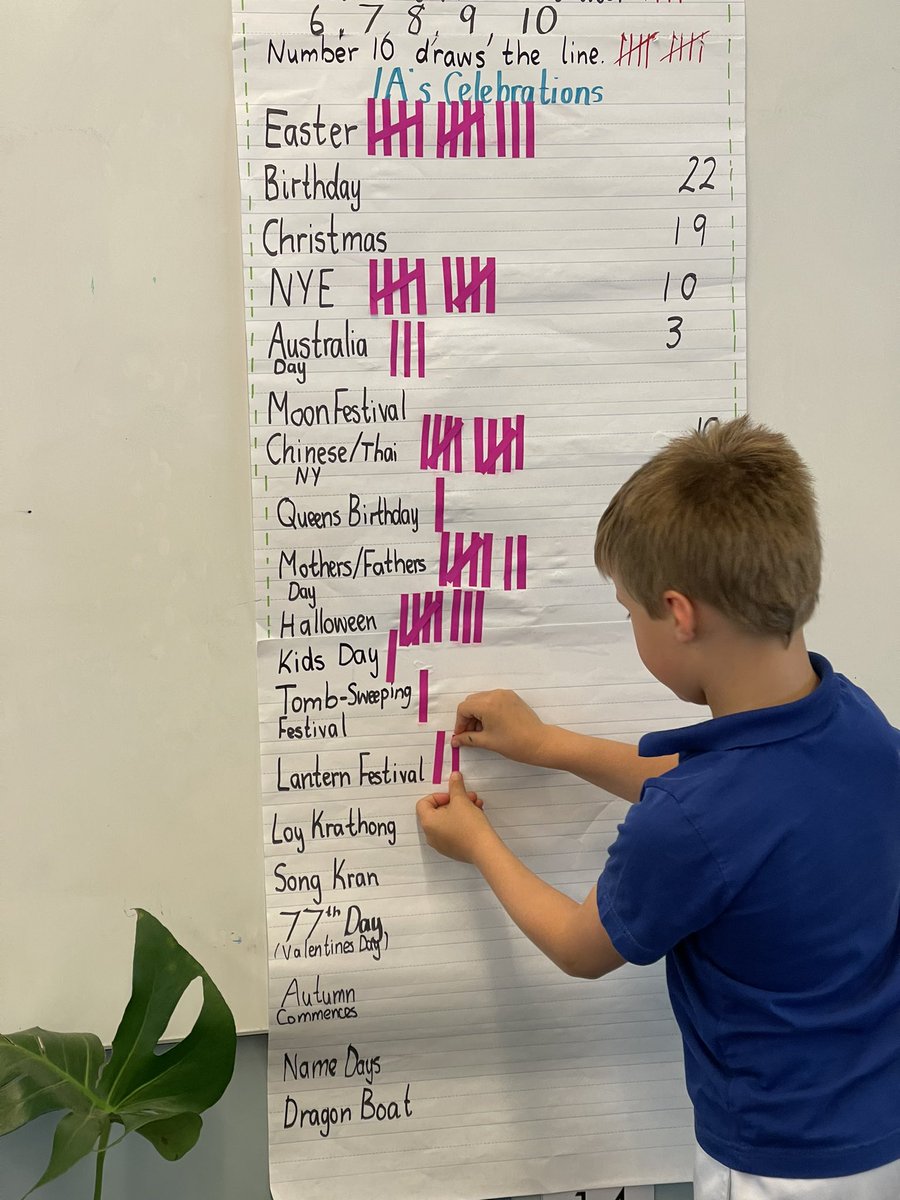 6, 7, 8, 9 10
Number 10 draws the line.
1A's Celebrations
Easter
Birthday 22
Christmas 19
NYE 10
Australia 3
Day
Moon Festival
Chinese/Thai
NY
Queens Birthday
Mothers/Fathers
Day
Halloween
Kids Day
Tomb-Sweeping
Festival
Lantern Festival
Loy Krathong
Song Kran
77th Day
(Valentines Day)
Autumn
Commences
Name Days
Dragon Boat